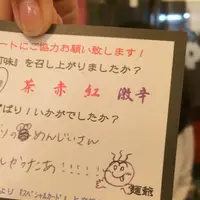 ートにご協力お願い致します！
町味』を召し上がりましたか？
茶 赤 紅 激辛
ぱり！いかがでしたか？
めんじいさん
かったあ！！！！！
麺爺
より『スペシャルカード』